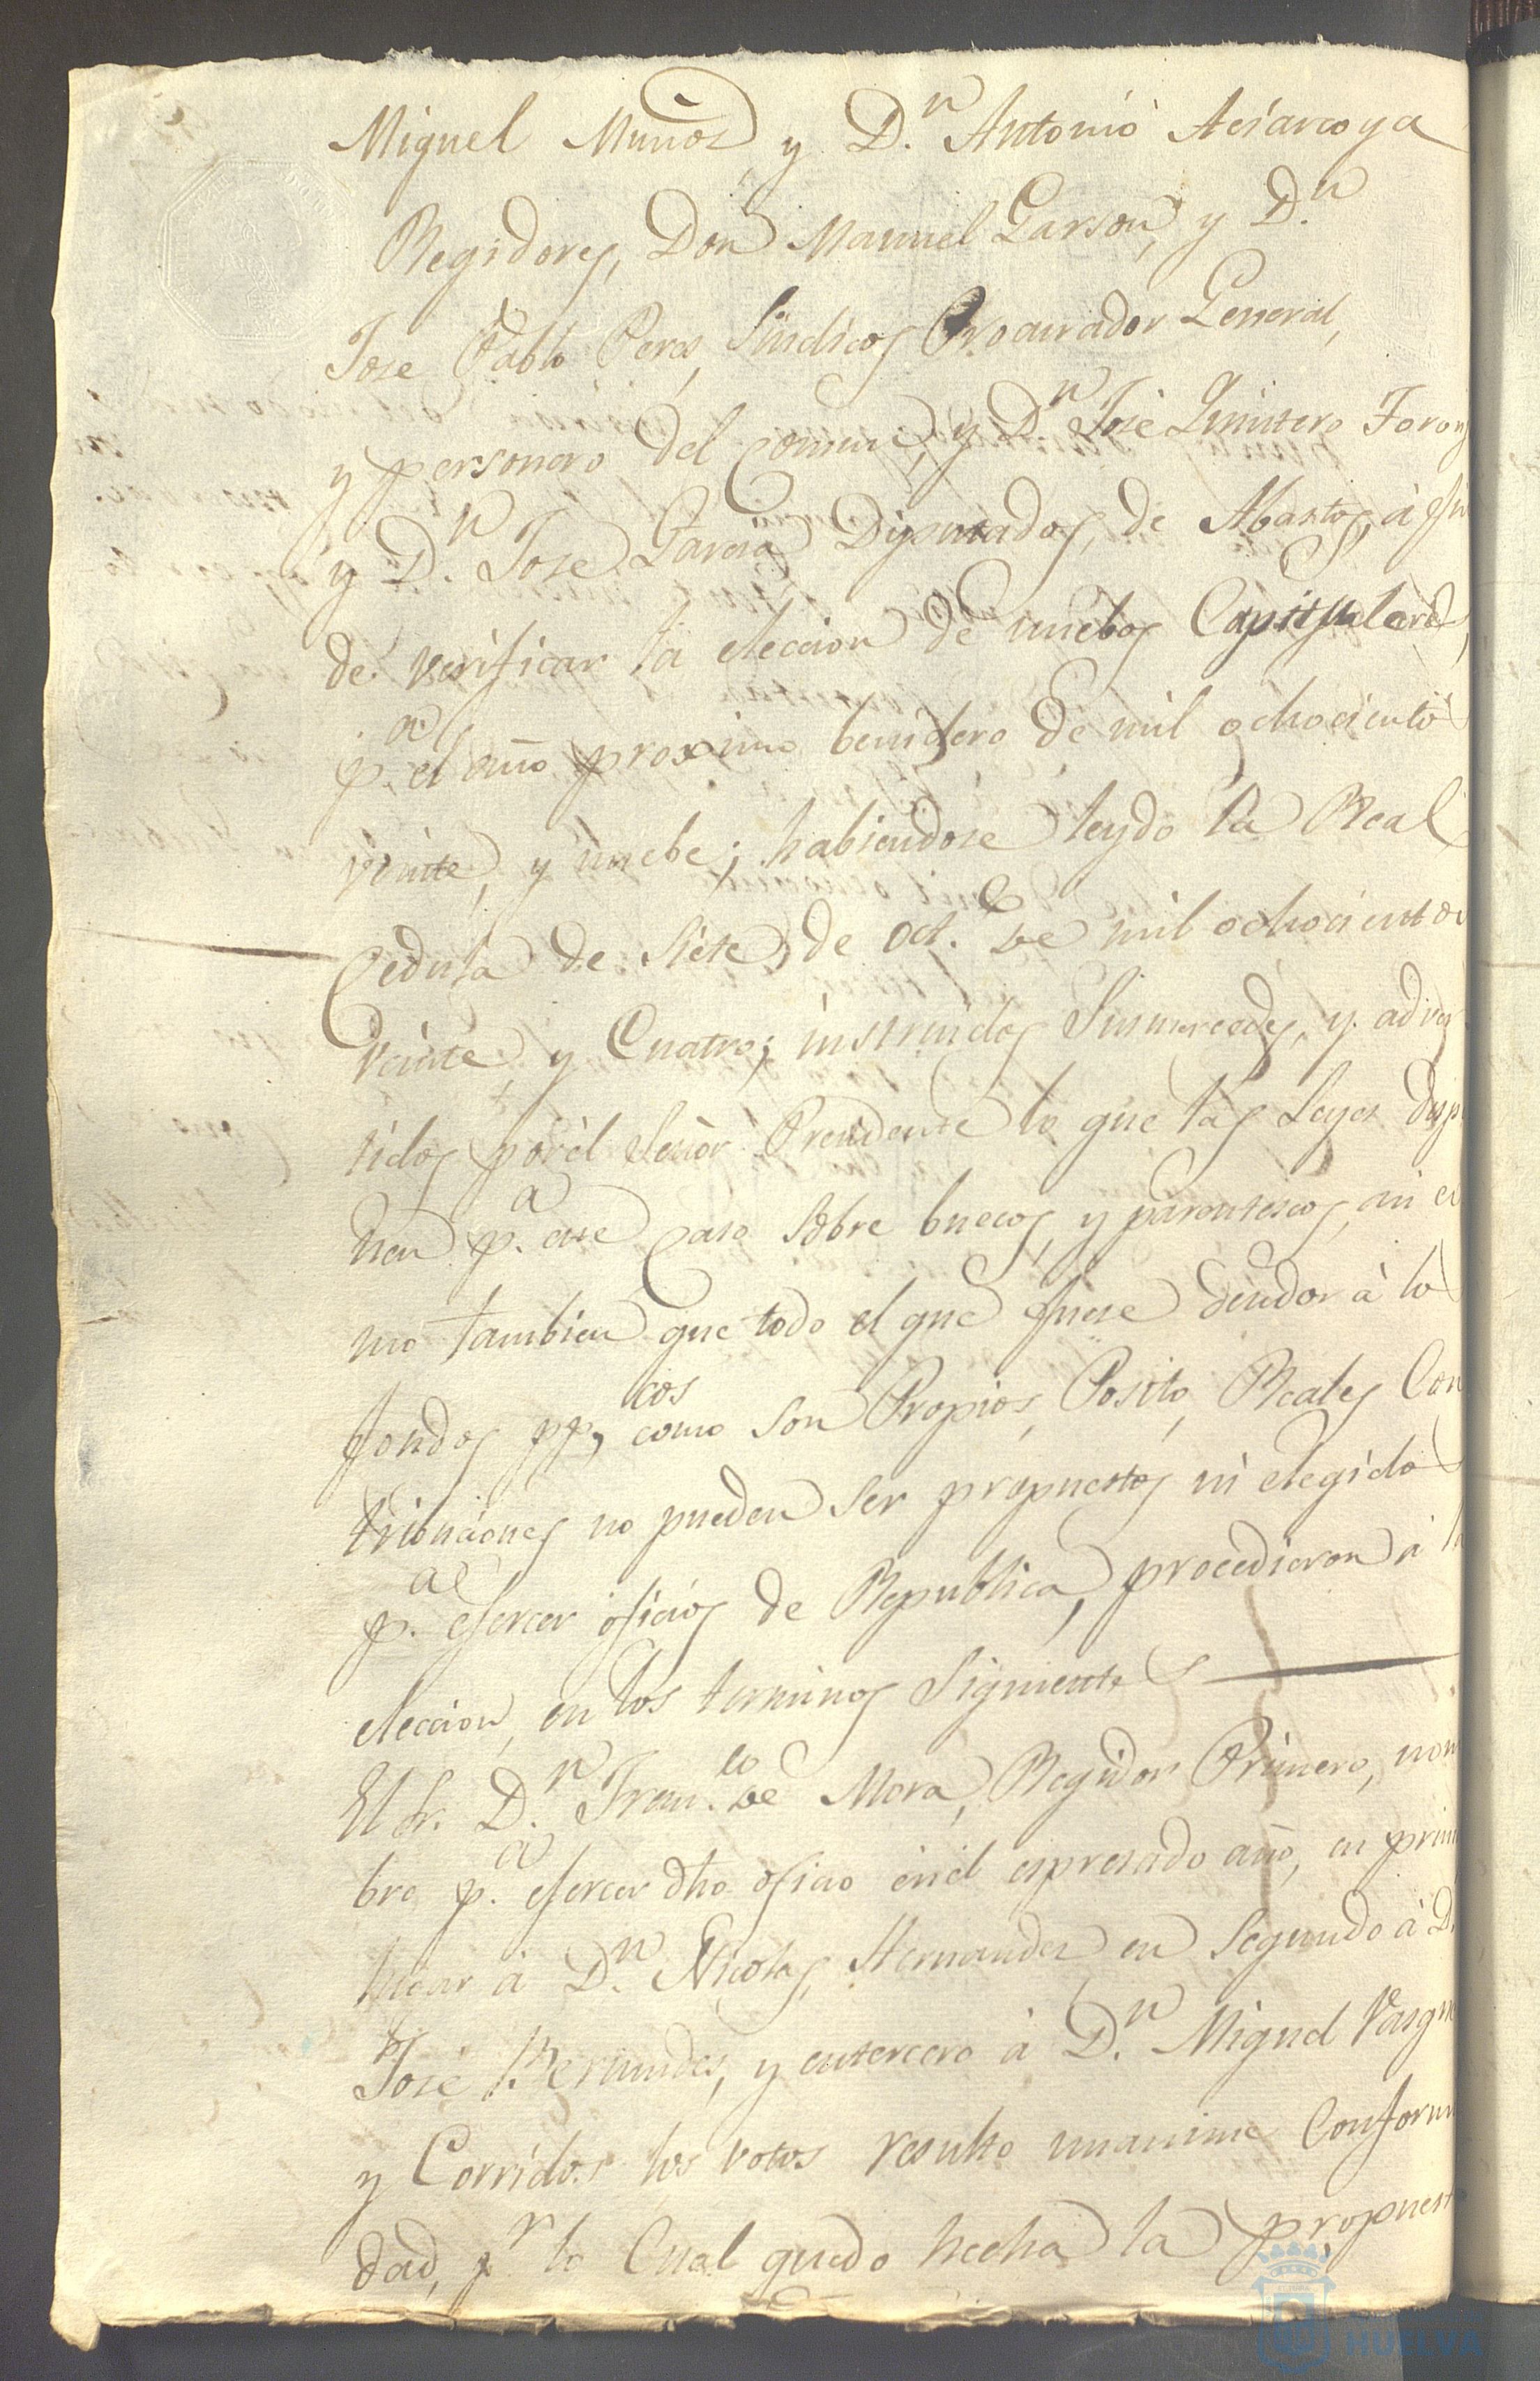 Miguel Muñoz y D.n Antonio Asiarcoya
Regidores, Don Manuel Garson, y D.n
Jose Pablo Peres, Sindicos Procurador General,
y personero del Comun, y D.n José Quintero
y D.n Jose Garcia Diputados, de Abastos, à fin
de verificar la eleccion de nuebos Capitulares,
p.a el año proximo benidero de mil ochocientos
veinte, y nuebe; habiendose leydo la Real
Cedula de Siete, de Oct.e de mil ochocientos
veinte, y Cuatro; instruidos Susmercedes, y adver
tidos por èl Señor Presidente lo que las Leyes dispo
nen p.a este Caso sobre huecos, y parentescos, asi co
mo tambien que todo el que fuese deudor à los
fondos pp,cos como son Propios, Posito, Reales Con
tribuciones no pueden ser propuestos ni elegidos
p.a esercer oficios de Republica, procedieron à la
eleccion, en los terminos Siguientes
El Sr. D.n Fran.co de Mora, Regidor Primero, nom
bro p.a esercer dho. oficio en èl espresado año, en primer
lugar à D.n Nicolas, Hernandez en Segundo à D.n
José Bermudes, y entercero à D.n Miguel Vasquez
y Corridos los votos resulto unanime Conformi
dad, p.r lo Cual quedo hecha la propuesta
HUELVA